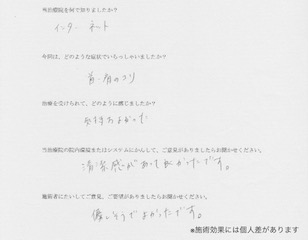 当治療院を何で知りましたか？
インターネット
今回は、どのような症状でいらっしゃいましたか？
首・肩のコリ
治療を受けられて、どのように感じましたか？
気持ちよかった
当治療院の院内環境またはシステムにかんして、ご意見がありましたらお聞かせください。
清潔感があってよかったです。
施術者にたいしてご意見、ご要望がありましたらお聞かせください。
優しそうでよかったです。
※施術効果には個人差があります